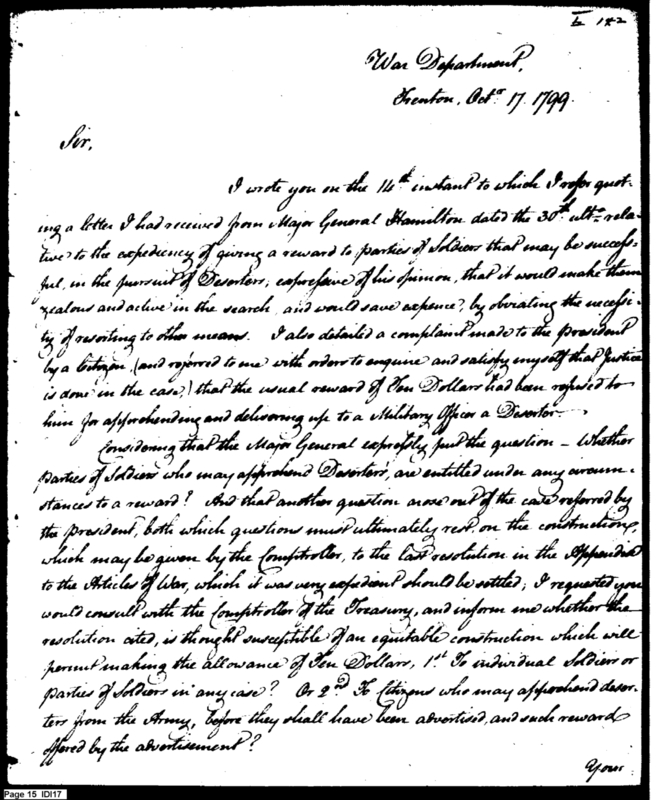 E 142
War Department,
Trenton, Octr 17. 1799.
Sir,
I wrote you on the 14th instant to which I refer quot-
ing a letter I had received from Major General Hamilton dated the 30th ulto rela-
tive to the expediency of giving a reward to parties of Soldiers that may be success-
ful, in the pursuit of Deserters, expressive of his opinion, that it would make them
zealous and active in the search, and would save expence, by obviating the necessi-
ty of resorting to other means. I also detailed a complaint made to the President
by a Citizen, (and referred to me with orders to enquire and satisfy myself that Justice
is done in the case,) that the usual reward of Ten Dollars had been refused to
him for apprehending and delivering up to a Military Officer a Deserter.
Considering that the Major General expressly put the question — Whether
parties of Soldiers who may apprehend Deserters, are entitled under any circum-
stances to a reward? And that another question arose out of the case referred by
the President, both which questions must ultimately rest, on the construction,
which may be given by the Comptroller, to the last resolution in the Appendix
to the Articles of War, which it was very expedient should be settled; I requested you
would consult with the Comptroller of the Treasury, and inform me whether the
resolution cited, is thought susceptible of an equitable construction which will
permit making the allowance of Ten Dollars, 1st To individual Soldiers or
parties of Soldiers in any case? Or 2nd To Citizens who may apprehend deser-
ters from the Army, before they shall have been advertised, and such reward
offered by the advertisement?
Your
Page 15 IDI17